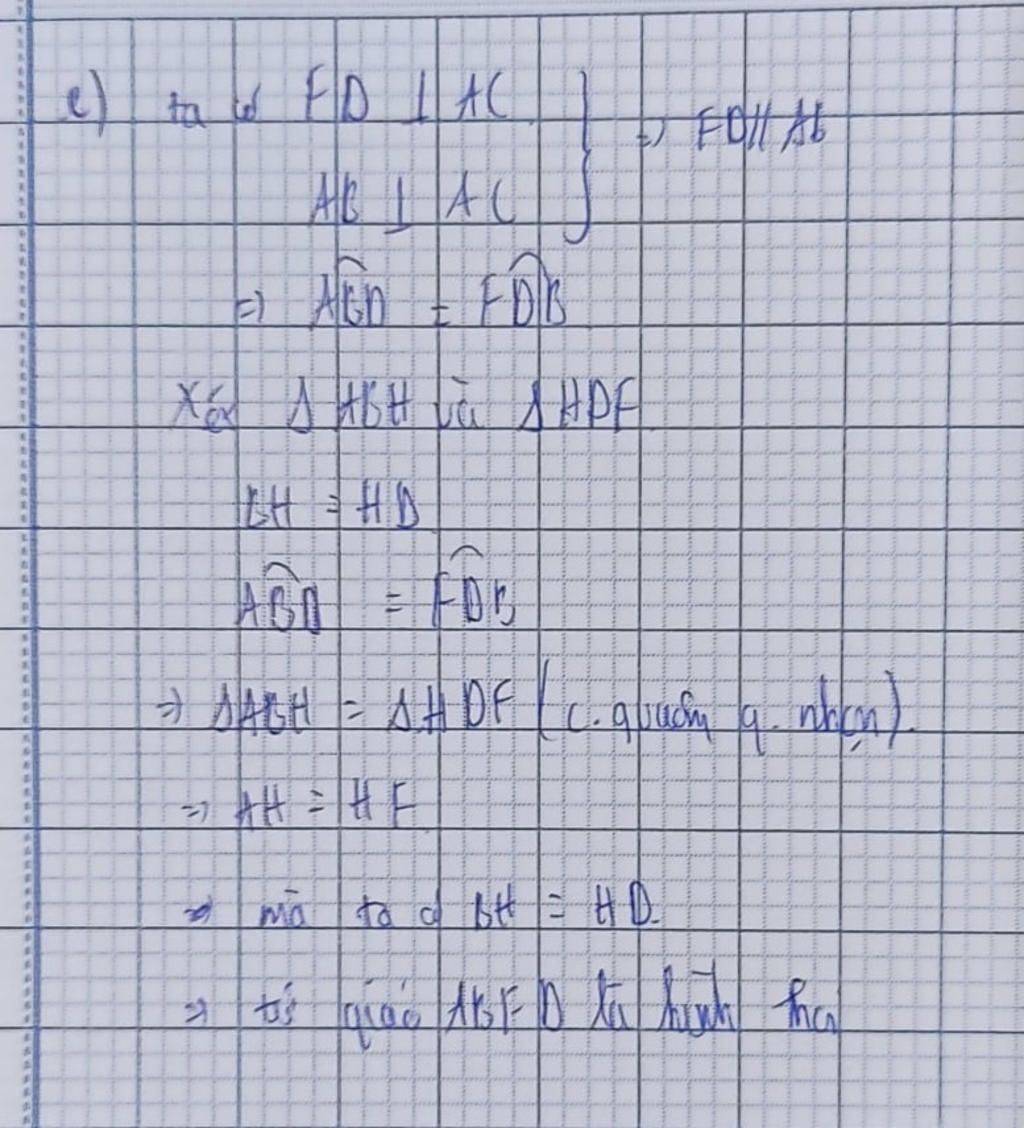 c) ta có FD ⊥ AC } => FD // AB
AB ⊥ AC
=> ABD = FDB
Xét Δ ABH và Δ HDF
BH = HD
ABD = FDB
=> ΔABH = ΔHDF (c. guôn g. nhọn).
=> AH = HF
=> mà ta có BH = HD.
=> tứ giác ABFD là hình thoi